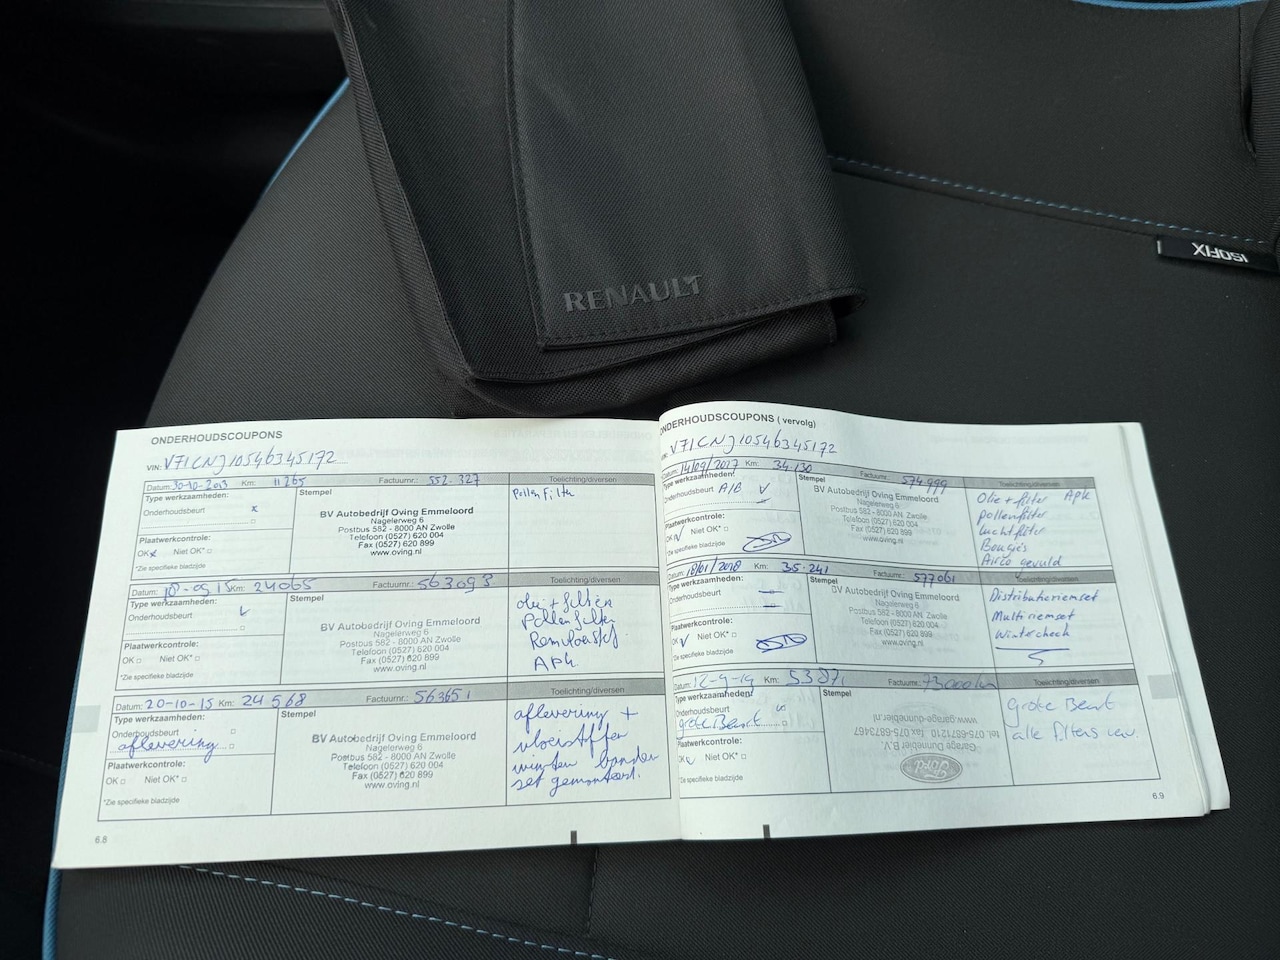 RENAULT
ISOFIX
ONDERHOUDSCOUPONS
VIN: V71CNJ10546345172
Datum: 30-10-2013 Km: 11265 Factuurnr.: 552.327 Toelichting/diversen
Type werkzaamheden:
Onderhoudsbeurt x
Plaatwerkcontrole:
OK x Niet OK*
*Zie specifieke bladzijde
Stempel
BV Autobedrijf Oving Emmeloord
Nagelerweg 6
Postbus 582 - 8000 AN Zwolle
Telefoon (0527) 620 004
Fax (0527) 620 899
www.oving.nl
Pollen Filter
Datum: 18-05-15 Km: 24065 Factuurnr.: 563093 Toelichting/diversen
Type werkzaamheden:
Onderhoudsbeurt
Plaatwerkcontrole:
OK Niet OK*
*Zie specifieke bladzijde
Stempel
BV Autobedrijf Oving Emmeloord
Nagelerweg 6
Postbus 582 - 8000 AN Zwolle
Telefoon (0527) 620 004
Fax (0527) 620 899
www.oving.nl
olie + filter
Pollenfilter
Remvloeistof
APK
Datum: 20-10-15 Km: 24568 Factuurnr.: 563651 Toelichting/diversen
Type werkzaamheden:
Onderhoudsbeurt
aflevering
Plaatwerkcontrole:
OK Niet OK*
*Zie specifieke bladzijde
Stempel
BV Autobedrijf Oving Emmeloord
Nagelerweg 6
Postbus 582 - 8000 AN Zwolle
Telefoon (0527) 620 004
Fax (0527) 620 899
www.oving.nl
aflevering +
vloeistoffen
winter banden
set gemonteerd.
6.8
ONDERHOUDSCOUPONS ( vervolg)
VIN: V71CNJ10546345172
Datum: 14/09/2017 Km: 34.130 Factuurnr.: 574.999 Toelichting/diversen
Type werkzaamheden:
Onderhoudsbeurt A/B V
Plaatwerkcontrole:
OK Niet OK*
*Zie specifieke bladzijde
Stempel
BV Autobedrijf Oving Emmeloord
Nagelerweg 6
Postbus 582 - 8000 AN Zwolle
Telefoon (0527) 620 004
Fax (0527) 620 899
www.oving.nl
Olie + filter APK
pollenfilter
luchtfilter
Bougies
Airco gevuld
Datum: 18/01/2018 Km: 35.241 Factuurnr.: 577061 Toelichting/diversen
Type werkzaamheden:
Onderhoudsbeurt
Plaatwerkcontrole:
OK Niet OK*
*Zie specifieke bladzijde
Stempel
BV Autobedrijf Oving Emmeloord
Nagelerweg 6
Postbus 582 - 8000 AN Zwolle
Telefoon (0527) 620 004
Fax (0527) 620 899
www.oving.nl
Distributieriemset
Multiriemset
Wintercheck
Datum: 12-9-19 Km: 53871 Factuurnr.: 73000km Toelichting/diversen
Type werkzaamheden:
Onderhoudsbeurt
grote Beurt
Plaatwerkcontrole:
OK Niet OK*
*Zie specifieke bladzijde
Stempel
Ford
Garage Dunnebier B.V.
tel. 075-6871210 fax 075-6873467
www.garage-dunnebier.nl
Grote Beurt
alle filters verv.
6.9